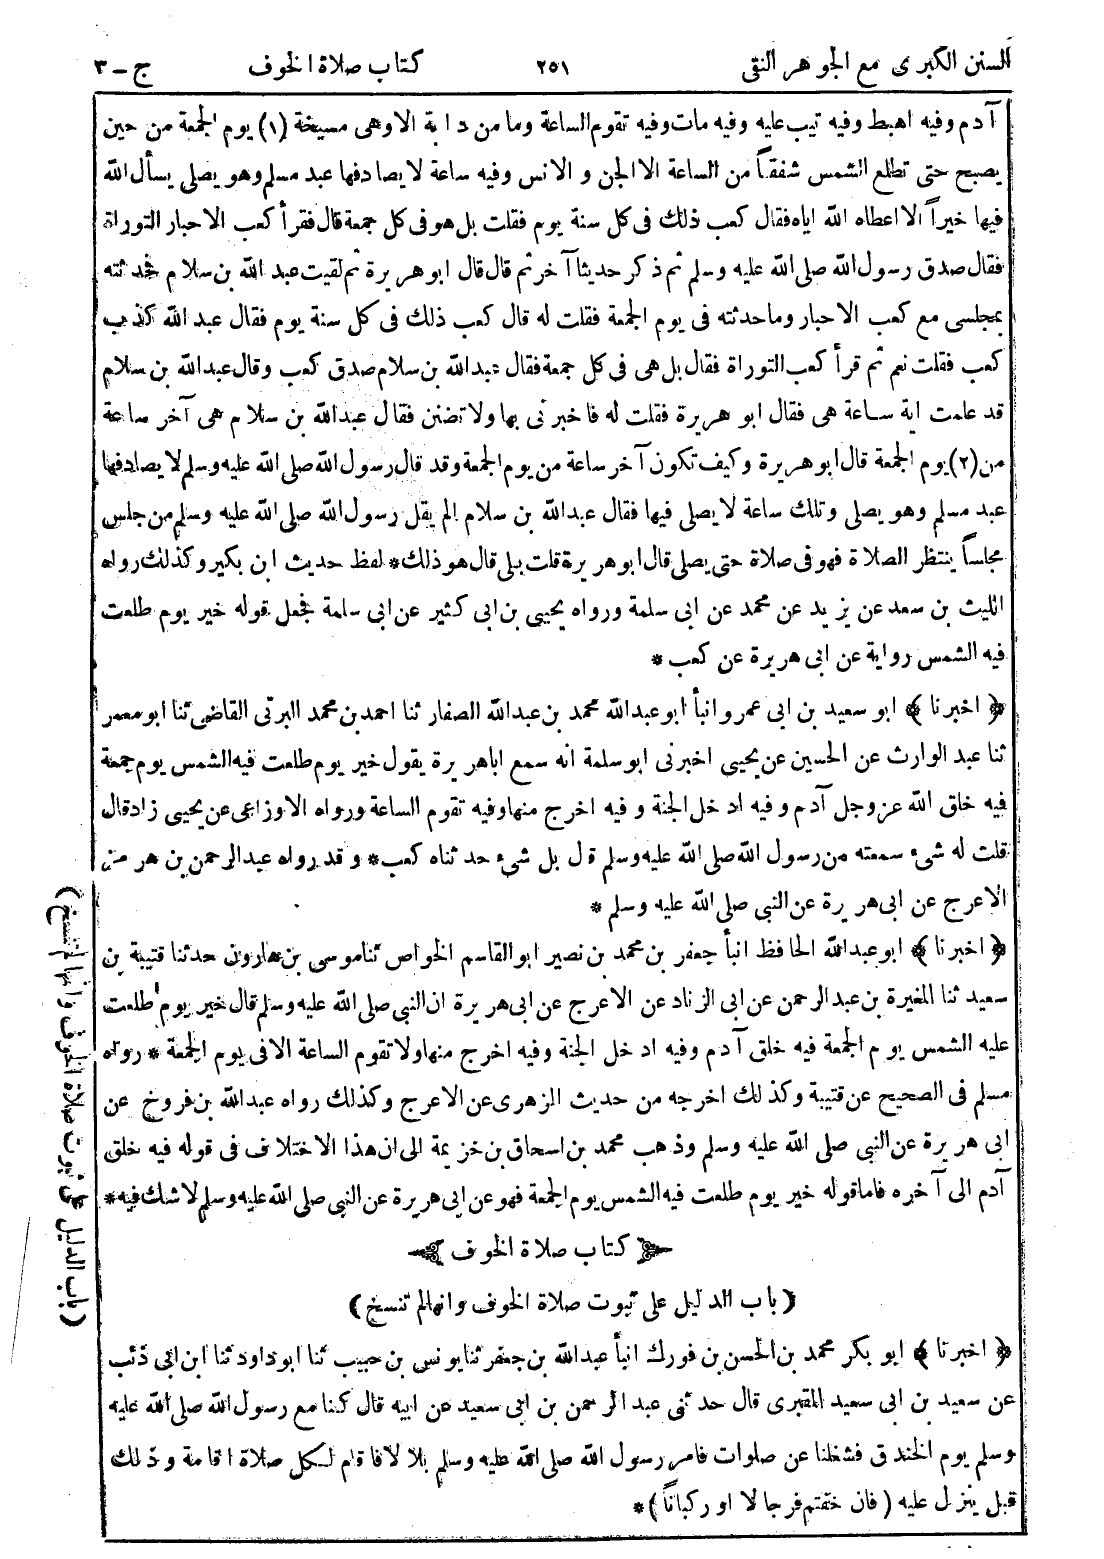 السنن الكبرى مع الجوهر النقى ٢٥١ كتاب صلاة الخوف ج - ٣
آدم وفيه اهبط وفيه تيب عليه وفيه مات وفيه تقوم الساعة وما من دابة الا وهى مسيخة (١) يوم الجمعة من حين
يصبح حتى تطلع الشمس شفقاً من الساعة الا الجن و الانس وفيه ساعة لا يصادفها عبد مسلم وهو يصلى يسأل الله
فيها خيراً الا اعطاه الله اياه فقال كعب ذلك فى كل سنة يوم فقلت بل هو فى كل جمعة قال فقرأ كعب الاحبار التوراة
فقال صدق رسول الله صلى الله عليه وسلم ثم ذكر حديثا آخر ثم قال قال ابو هريرة ثم لقيت عبد الله بن سلام فحدثته
بمجلسى مع كعب الاحبار وما حدثته فى يوم الجمعة فقلت له قال كعب ذلك فى كل سنة يوم فقال عبد الله كذب
كعب فقلت نعم ثم قرأ كعب التوراة فقال بل هى فى كل جمعة فقال عبدالله بن سلام صدق كعب وقال عبدالله بن سلام
قد علمت اية ساعة هى فقال ابو هريرة فقلت له فاخبرنى بها ولا تضنن فقال عبدالله بن سلام هى آخر ساعة
من (٢) يوم الجمعة قال ابو هريرة وكيف تكون آخر ساعة من يوم الجمعة وقد قال رسول الله صلى الله عليه وسلم لا يصادفها
عبد مسلم وهو يصلى وتلك ساعة لا يصلى فيها فقال عبدالله بن سلام الم يقل رسول الله صلى الله عليه وسلم من جلس
مجلساً ينتظر الصلاة فهو فى صلاة حتى يصلى قال ابو هريرة قلت بلى قال هو ذلك * لفظ حديث ابن بكير وكذلك رواه
الليث بن سعد عن يزيد عن محمد عن ابى سلمة ورواه يحيى بن ابى كثير عن ابى سلمة فجعل قوله خير يوم طلعت
فيه الشمس رواية عن ابى هريرة عن كعب *
﴿ اخبرنا ﴾ ابو سعيد بن ابى عمرو انبأ ابو عبدالله محمد بن عبدالله الصفار ثنا احمد بن محمد البرتى القاضى ثنا ابو معمر
ثنا عبد الوارث عن الحسين عن يحيى اخبرنى ابو سلمة انه سمع ابا هريرة يقول خير يوم طلعت فيه الشمس يوم جمعة
فيه خلق الله عز وجل آدم و فيه ادخل الجنة و فيه اخرج منها وفيه تقوم الساعة ورواه الاوزاعى عن يحيى زاد قال
قلت له شىء سمعته من رسول الله صلى الله عليه وسلم قال بل شىء حدثناه كعب * وقد رواه عبدالرحمن بن هرمز
الاعرج عن ابى هريرة عن النبى صلى الله عليه وسلم *
﴿ اخبرنا ﴾ ابو عبدالله الحافظ انبأ جعفر بن محمد بن نصير ابو القاسم الخواص ثنا موسى بن هارون حدثنا قتيبة بن
سعيد ثنا المغيرة بن عبد الرحمن عن ابى الزناد عن الاعرج عن ابى هريرة ان النبى صلى الله عليه وسلم قال خير يوم طلعت
عليه الشمس يوم الجمعة فيه خلق آدم وفيه ادخل الجنة وفيه اخرج منها ولا تقوم الساعة الا فى يوم الجمعة * رواه
مسلم فى الصحيح عن قتيبة وكذلك اخرجه من حديث الزهرى عن الاعرج وكذلك رواه عبدالله بن فروخ عن
ابى هريرة عن النبى صلى الله عليه وسلم وذهب محمد بن اسحاق بن خزيمة الى ان هذا الاختلاف فى قوله فيه خلق
آدم الى آخره فاما قوله خير يوم طلعت فيه الشمس يوم الجمعة فهو عن ابى هريرة عن النبى صلى الله عليه وسلم لا شك فيه *
كتاب صلاة الخوف
(باب الدليل على ثبوت صلاة الخوف وانها لم تنسخ)
﴿ اخبرنا ﴾ ابو بكر محمد بن الحسن بن فورك انبأ عبدالله بن جعفر ثنا يونس بن حبيب ثنا ابو داود ثنا ابن ابى ذئب
عن سعيد بن ابى سعيد المقبرى قال حدثنى عبد الرحمن بن ابى سعيد عن ابيه قال كنا مع رسول الله صلى الله عليه
وسلم يوم الخندق فشغلنا عن صلوات فامر رسول الله صلى الله عليه وسلم بلالا فاقام لكل صلاة اقامة وذلك
قبل ينزل عليه (فان خفتم فرجالا او ركباناً) *
(باب الدليل على ثبوت صلاة الخوف وانها لم تنسخ)